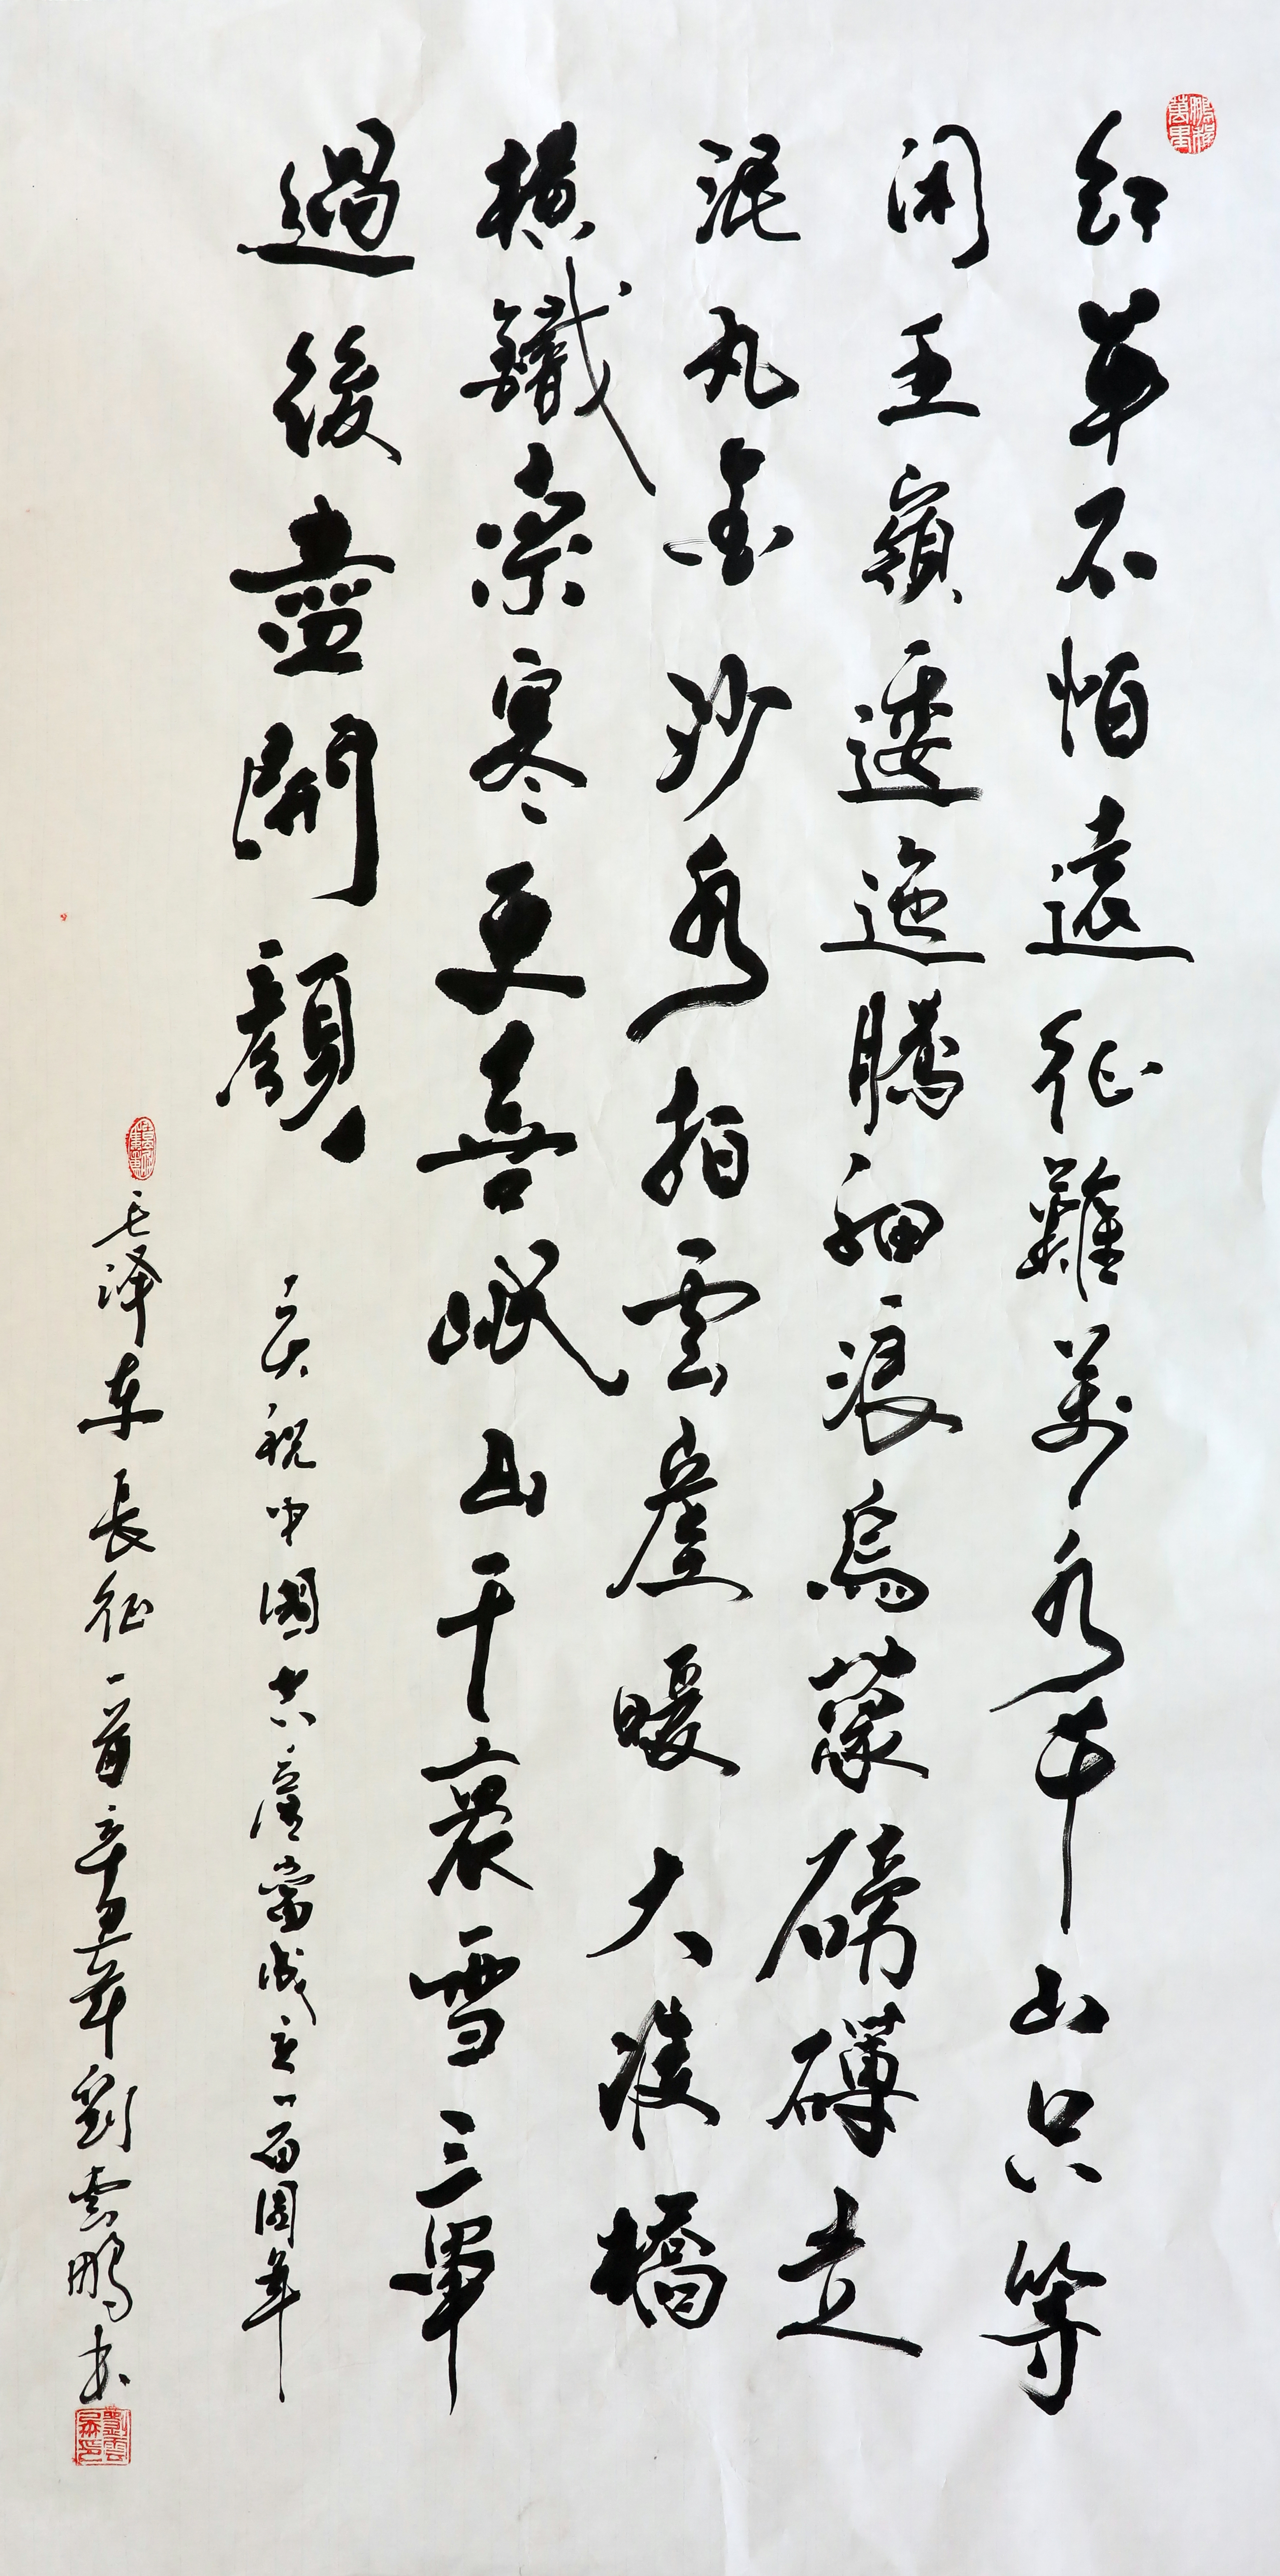 鵬程萬里
紅軍不怕遠征難萬水千山只等
閑五嶺逶迤騰細浪烏蒙磅礴走
泥丸金沙水拍雲崖暖大渡橋
橫鐵索寒更喜岷山千裏雪三軍
過後盡開顏
庆祝中國共產黨成立一百周年
毛泽东長征一首辛丑年劉雲鵬书
劉雲鵬印